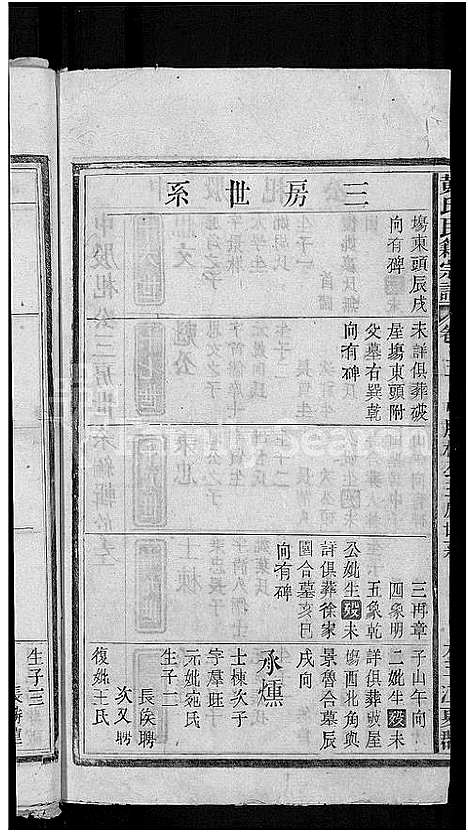 三房世系
塲東頭辰戌
向有碑
未詳俱葬破
屋塲東頭附
父墓右巽乾
向有碑
三冉章
四象明
五象乾
公妣生歿未
詳俱葬徐家
園合墓亥巳
向有碑
子山午向
二妣生歿未
詳俱葬破屋
塲西北角與
景魯合墓辰
戌向
承燻
士棟次子
元妣宛氏
生子二
長俟聘
次又聘
復妣王氏
生子三
江夏郡